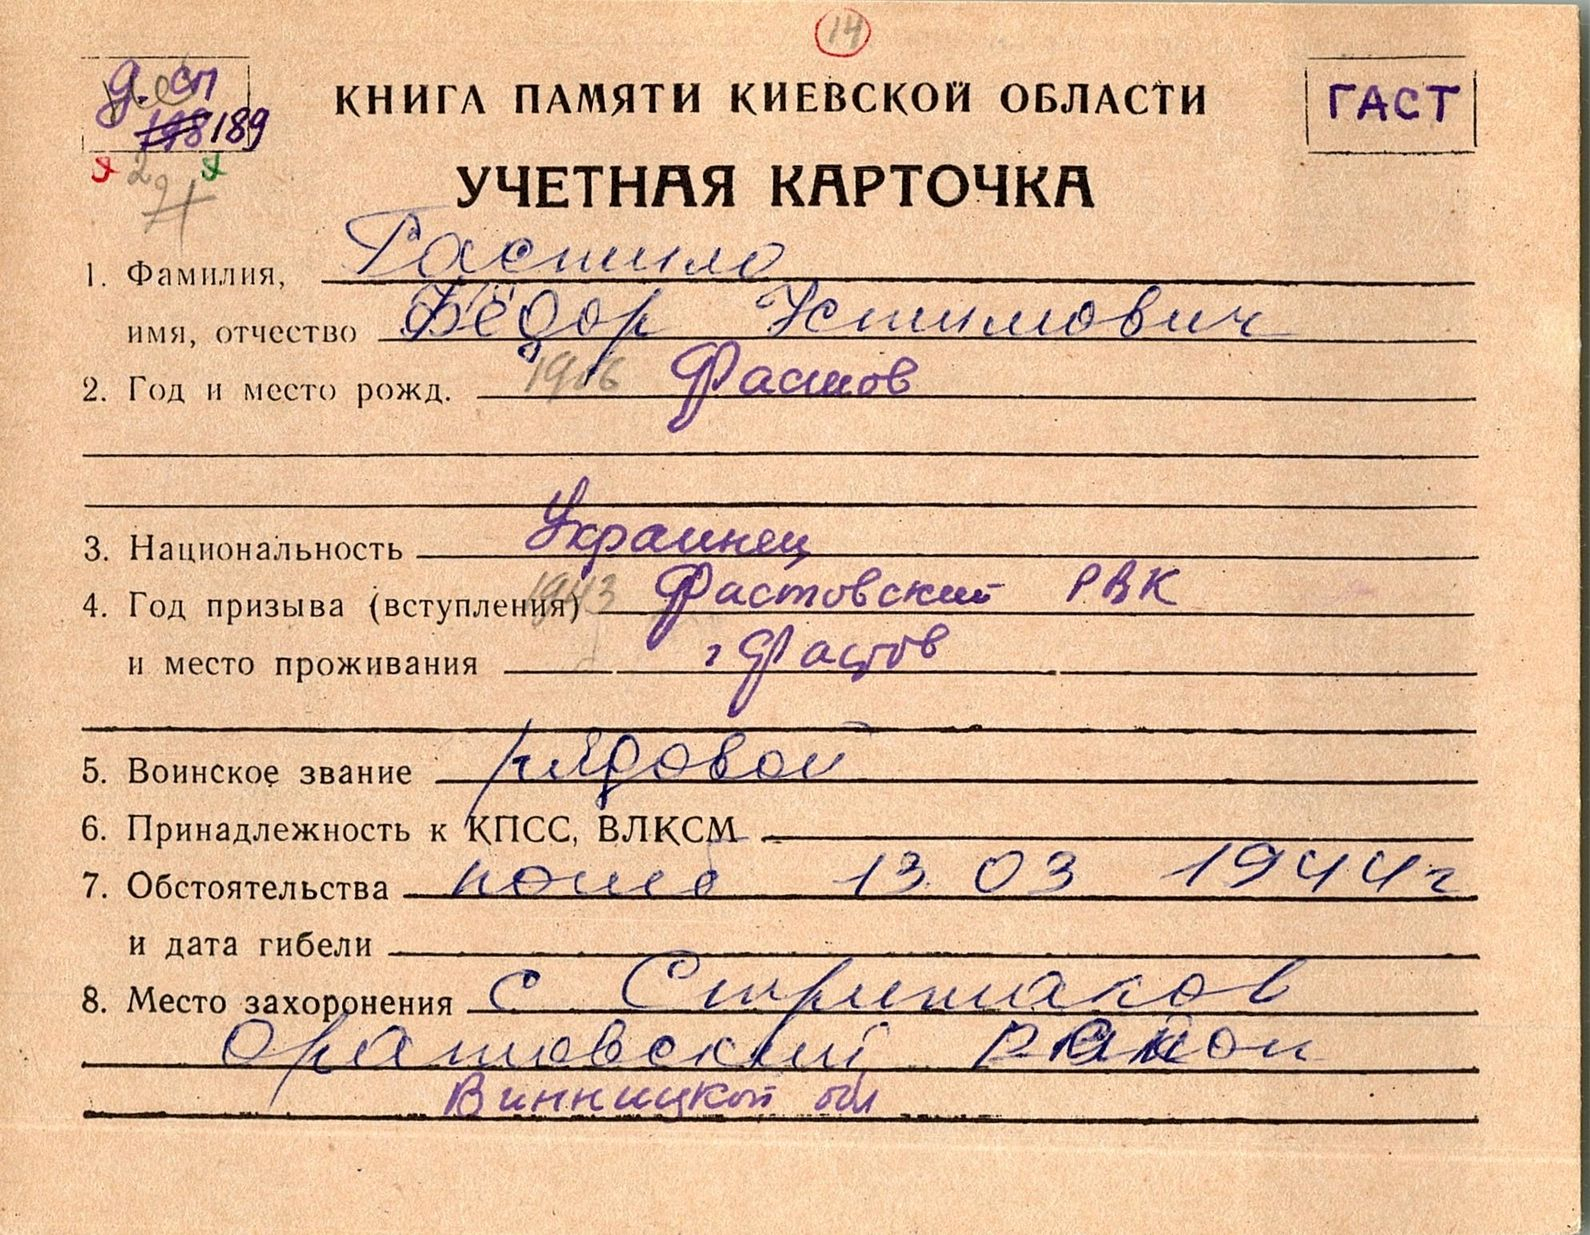 14
д. сп
189
КНИГА ПАМЯТИ КИЕВСКОЙ ОБЛАСТИ
ГАСТ
УЧЕТНАЯ КАРТОЧКА
1. Фамилия, Гастило
имя, отчество Фёдор Устимович
2. Год и место рожд. 1906 Фастов
3. Национальность Украинец
4. Год призыва (вступления) 1943 Фастовский РВК
и место проживания г Фастов
5. Воинское звание рядовой
6. Принадлежность к КПСС, ВЛКСМ
7. Обстоятельства погиб 13 03 1944г
и дата гибели
8. Место захоронения с Стрижаков
Оратовский район
Винницкой обл